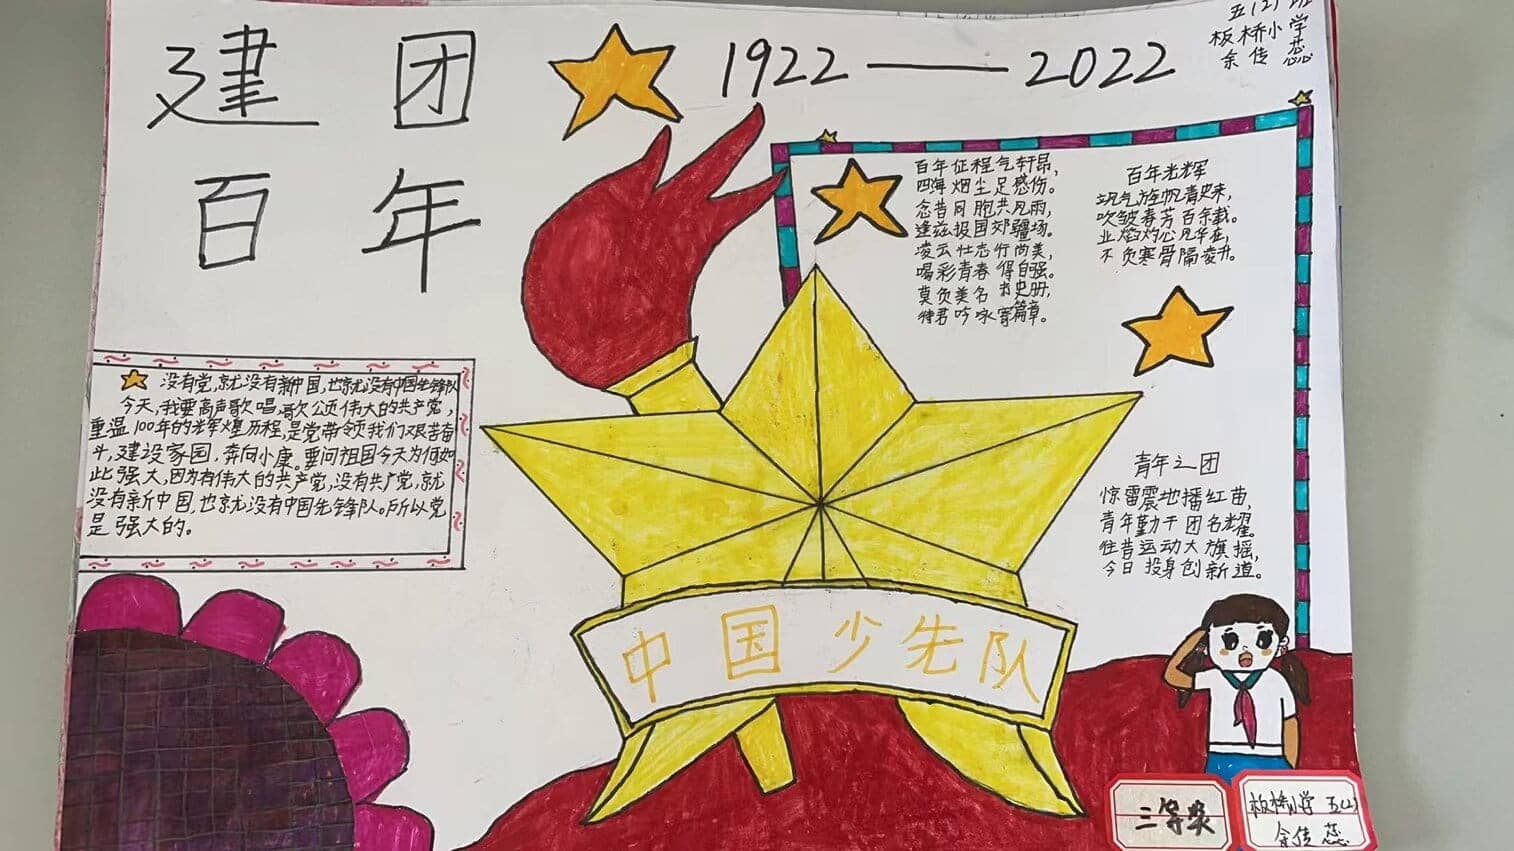 建团
百年
1922——2022
五(2)班
板桥小学
余传蕊
百年征程气轩昂,
四海烟尘足感伤。
念昔同胞共风雨,
逢兹报国郊疆场。
凌云壮志行尚美,
喝彩青春得自强。
莫负美名书史册,
待君吟咏寄篇章。
百年光辉
飒气旋帆青史来,
吹皱春芳百余载。
业焰灼心风华在,
不负寒骨隔凌升。
没有党,就没有新中国,也就没有中国先锋队
今天,我要高声歌唱,歌公颂伟大的共产党,
重温100年的光辉煌历程,是党带领我们艰苦奋
斗,建设家园,奔向小康。要问祖国今天为何如
此强大,因为有伟大的共产党,没有共产党,就
没有新中国,也就没有中国先锋队。所以党
是强大的。
青年之团
惊雷震地播红苗,
青年勤干团名耀。
往昔运动大旗摇,
今日投身创新道。
中国少先队
三等奖
板桥小学 五(2)
余传蕊